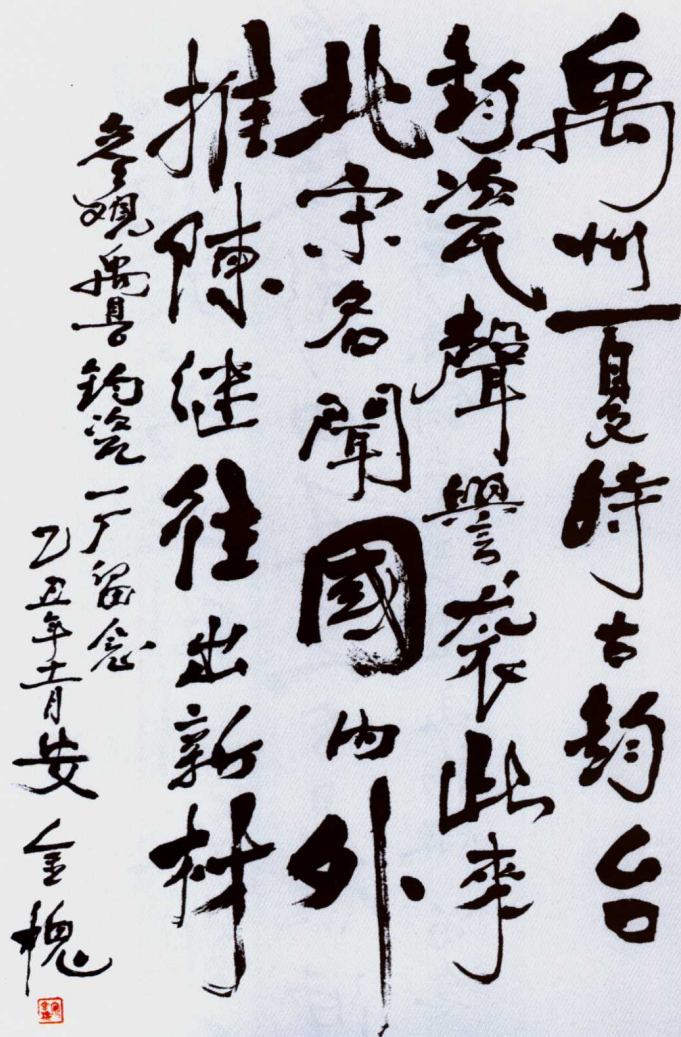 禹州夏時古鈞台
鈞瓷聲譽襲此來
北宋名聞國内外
推陳继往出新材
参观禹县钧瓷一厂留念
乙丑年十一月安金槐